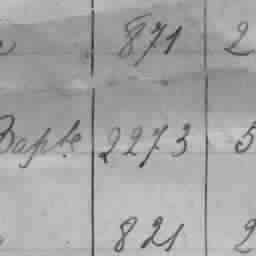 871 2
2273 5
821 2